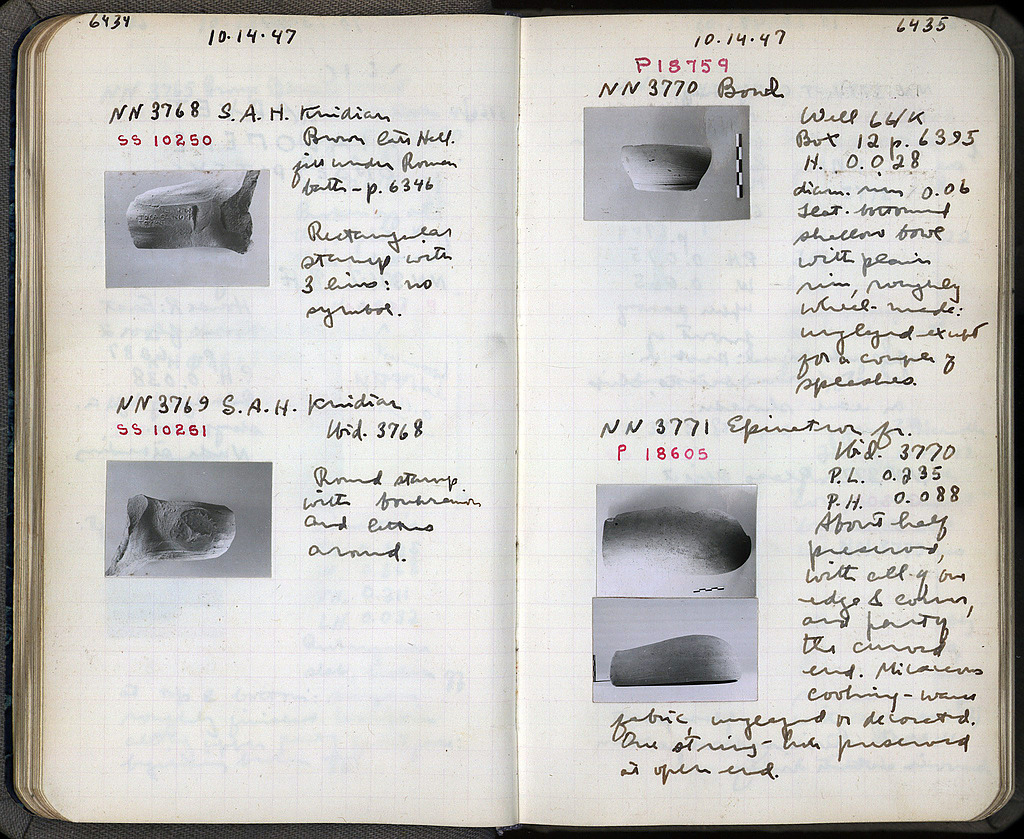 6434
10·14·47
NN 3768 S.A.H. Knidian
SS 10250
Brown late Hell.
fill under Roman
bath – p. 6346
Rectangular
stamp with
3 lines: no
symbol.
NN 3769 S.A.H. Knidian
SS 10251
Ibid. 3768
Round stamp
with boukranion
and letters
around.
6435
10·14·47
P18759
NN 3770 Bowl
Well 66/K
Box 12 p. 6395
H. 0.028
diam. rim 0.06
Flat-bottomed
shallow bowl
with plain
rim, roughly
wheel-made:
unglazed except
for a couple of
splashes.
NN 3771 Epinetron fr.
P 18605
Ibid. 3770
P.L. 0.235
P.H. 0.088
About half
preserved,
with all of one
edge & corner,
and partly
the curved
end. Micaceous
cooking-ware
fabric, unglazed or decorated.
One string-hole preserved
at open end.